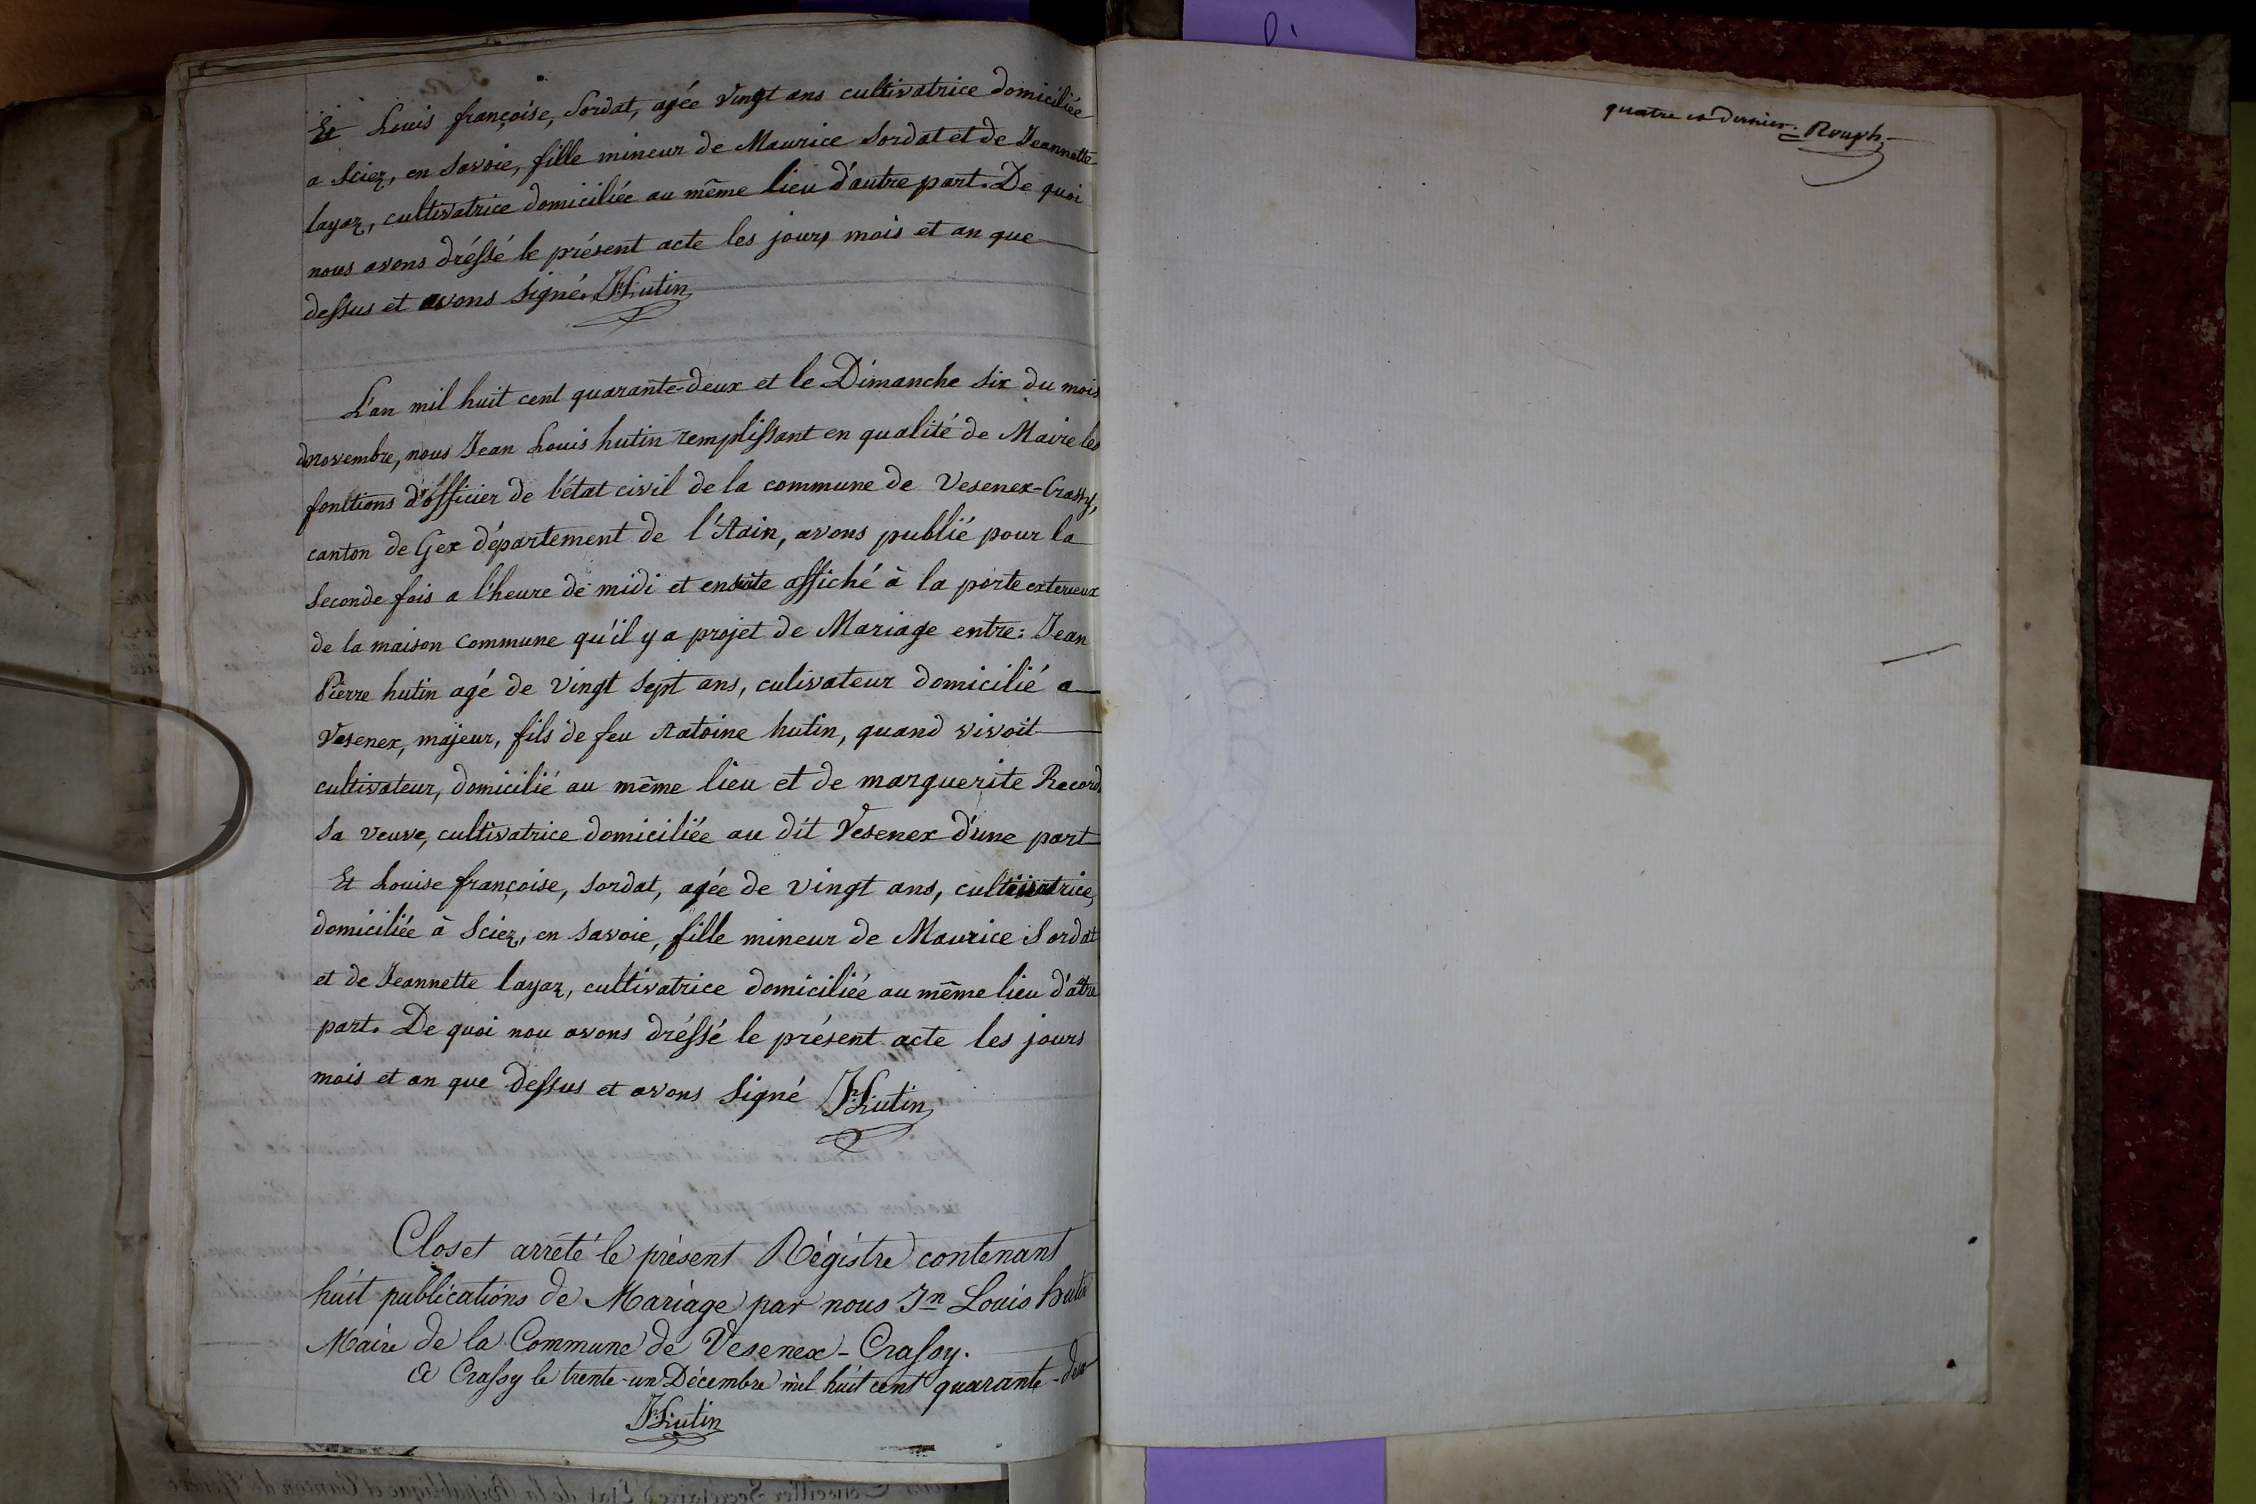 Et Louis françoise, Sordat, agée vingt ans cultivatrice domiciliée
a Sciez, en Savoie, fille mineur de Maurice Sordat et de Jeannette
layaz, cultivatrice domiciliée au même lieu d'autre part. De quoi
nous avons dréssé le présent acte les jours mois et an que
dessus et avons signé. JHutin
L'an mil huit cent quarante-deux et le Dimanche six du mois
novembre, nous Jean Louis hutin remplissant en qualité de Maire les
fonctions d'officier de l'état civil de la commune de Vesenex-Crassy,
canton de Gex département de l'Aain, avons publié pour la
seconde fois a l'heure de midi et ensuite affiché à la porte exterieux
de la maison commune qu'il y a projet de Mariage entre: Jean
Pierre hutin agé de vingt sept ans, culivateur domicilié a
Vesenex, majeur, fils de feu Antoine hutin, quand vivoit
cultivateur, domicilié au même lieu et de marguerite Record
sa veuve, cultivatrice domiciliée au dit Vesenex d'une part
Et Louise françoise, Sordat, agée de vingt ans, cultivatrice,
domiciliée à Sciez, en Savoie, fille mineur de Maurice Sordat
et de Jeannette layaz, cultivatrice domiciliée au même lieu d'atre
part. De quoi nou avons dréssé le présent acte les jours
mois et an que Dessus et avons signé JHutin
Clos et arrêté le présent Régistre contenant
huit publications de Mariage par nous Jn Louis hutin
Maire de la Commune de Vesenex-Crassy.
A Crassy le trente-un Décembre mil huit cent quarante-deux
JHutin
quatre et dernier. Rouph